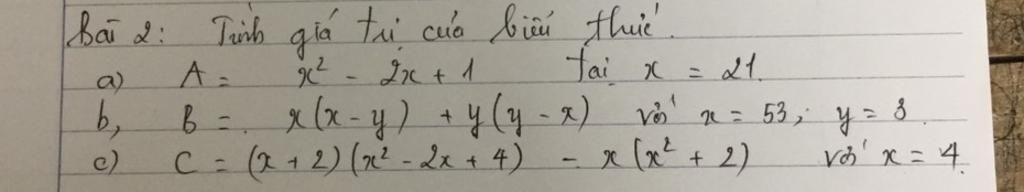 Bài 2: Tính giá trị của biểu thức.
a) A = x² - 2x + 1 tại x = 21.
b, B = x(x - y) + y(y - x) với x = 53; y = 3.
c) C = (x + 2)(x² - 2x + 4) - x(x² + 2) với x = 4.